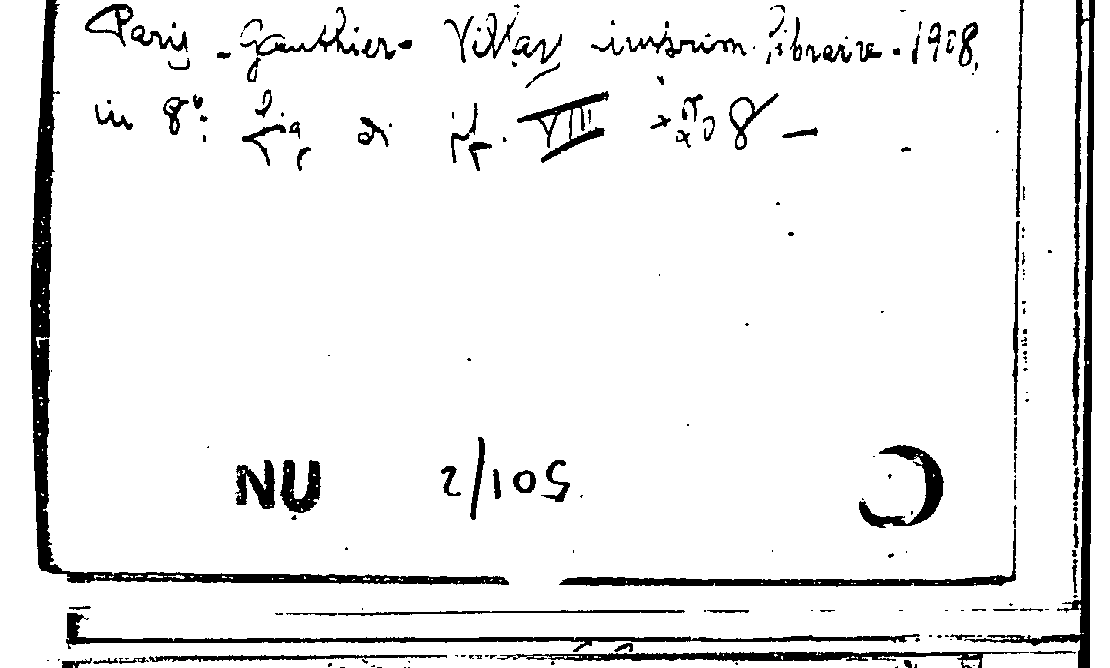 Paris - Gauthier- Villars imprim. libraire. 1908,
in 8º: fig di pp. VIII 208 —
NU 2/105